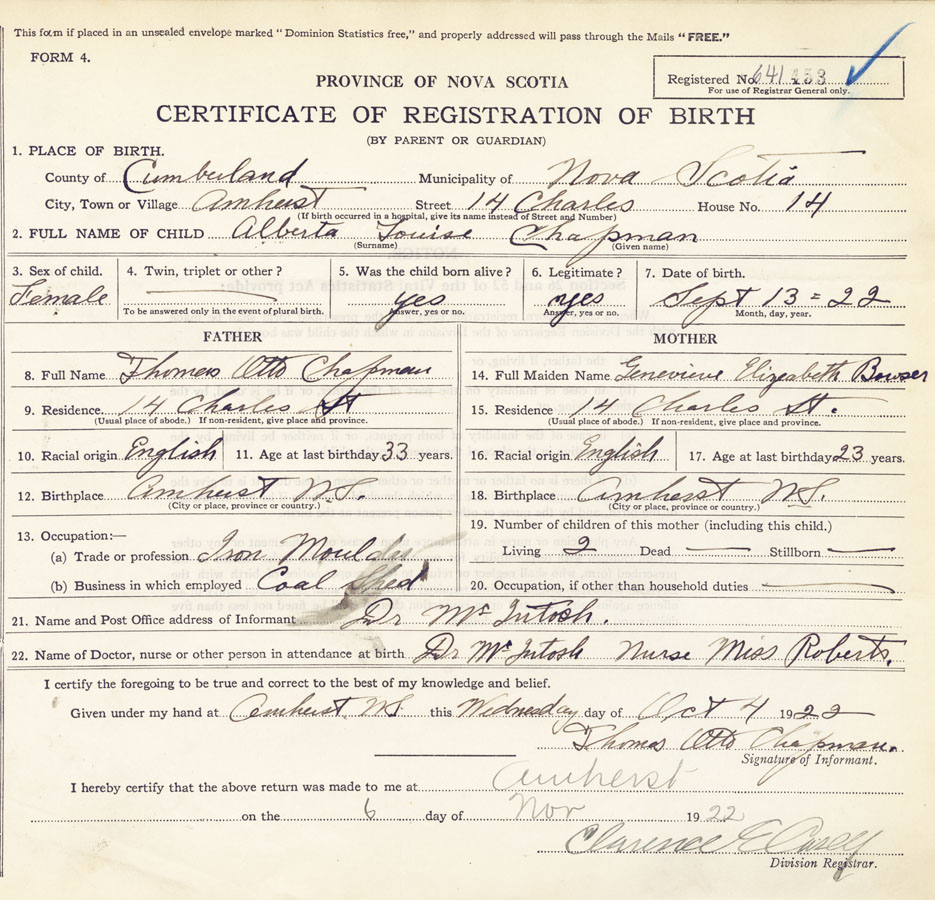 This form if placed in an unsealed envelope marked "Dominion Statistics free," and properly addressed will pass through the Mails "FREE."
FORM 4.
PROVINCE OF NOVA SCOTIA
Registered No. 641
For use of Registrar General only.
CERTIFICATE OF REGISTRATION OF BIRTH
(BY PARENT OR GUARDIAN)
1. PLACE OF BIRTH.
County of Cumberland Municipality of Nova Scotia
City, Town or Village Amherst Street 14 Charles House No. 14
(If birth occurred in a hospital, give its name instead of Street and Number)
2. FULL NAME OF CHILD Alberta Louise Chapman
(Surname) (Given name)
3. Sex of child. 4. Twin, triplet or other? 5. Was the child born alive? 6. Legitimate? 7. Date of birth.
Female yes yes Sept 13 = 22
To be answered only in the event of plural birth. Answer, yes or no. Answer, yes or no. Month, day, year.
FATHER MOTHER
8. Full Name Thomas Otto Chapman 14. Full Maiden Name Genevieve Elizabeth Bowser
9. Residence. 14 Charles St 15. Residence 14 Charles St.
(Usual place of abode.) If non-resident, give place and province. (Usual place of abode.) If non-resident, give place and province.
10. Racial origin English 11. Age at last birthday 33 years. 16. Racial origin English 17. Age at last birthday 23 years.
12. Birthplace Amherst N.S. 18. Birthplace Amherst N.S.
(City or place, province or country.) (City or place, province or country.)
13. Occupation:— 19. Number of children of this mother (including this child.)
(a) Trade or profession Iron Moulder Living 2 Dead — Stillborn —
(b) Business in which employed Coal Shed 20. Occupation, if other than household duties —
21. Name and Post Office address of Informant Dr McIntosh.
22. Name of Doctor, nurse or other person in attendance at birth Dr McIntosh Nurse Miss Roberts.
I certify the foregoing to be true and correct to the best of my knowledge and belief.
Given under my hand at Amherst, N.S this Wednesday day of Oct 4 1922
Thomas Otto Chapman.
Signature of Informant.
I hereby certify that the above return was made to me at Amherst
on the 6 day of Nov 1922
Clarence E
Division Registrar.